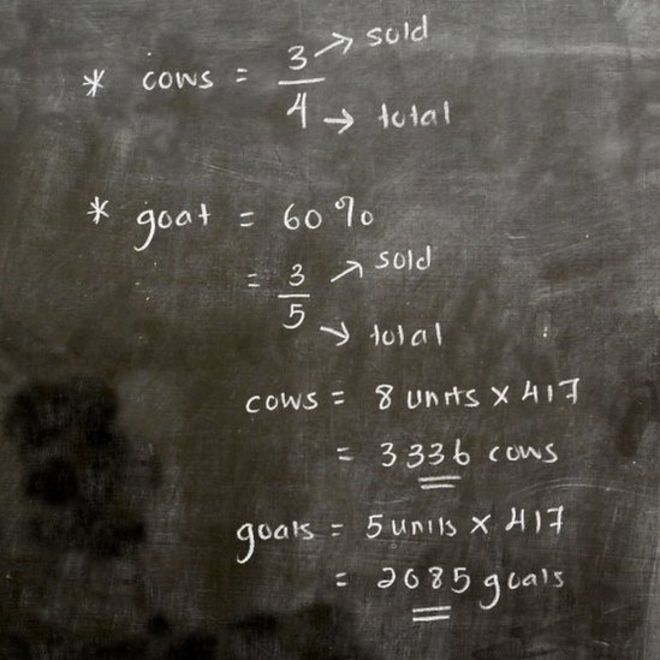 * cows = 3/4 → sold → total
* goat = 60%
= 3/5 → sold → total
cows = 8 units × 417
= 3336 cows
goats = 5 units × 417
= 2085 goats